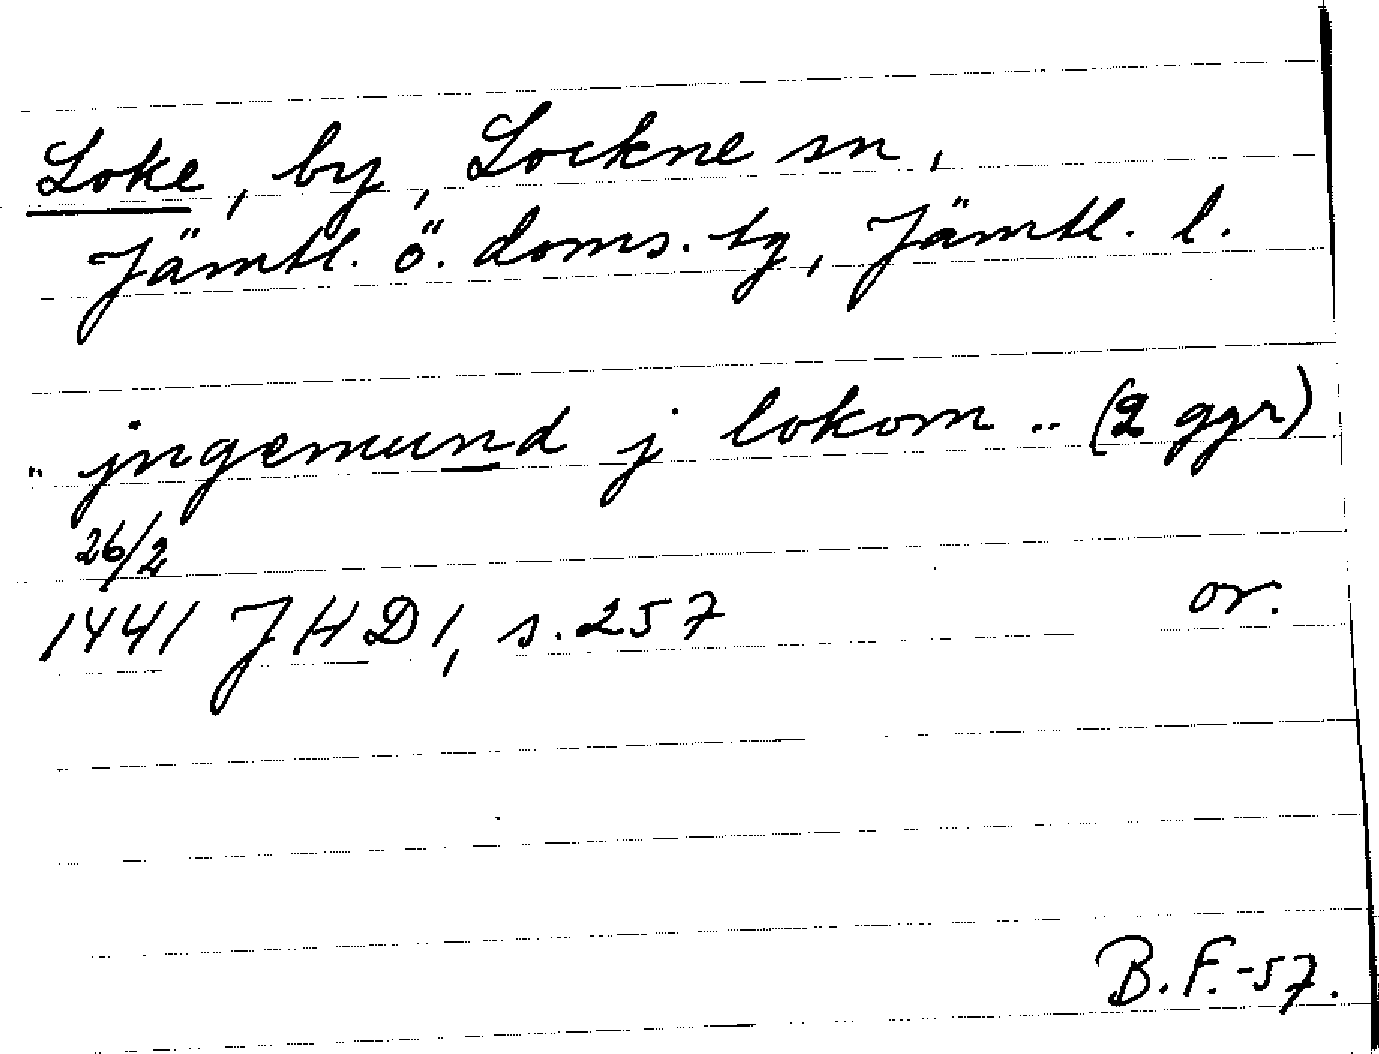 Loke, by, Lockne sn,
Jämtl. ö. doms. tg, Jämtl. l.
" jngemund j lokom .. (2 ggr)
26/2
1441 JHD 1, s. 257 or.
B. F. -57.